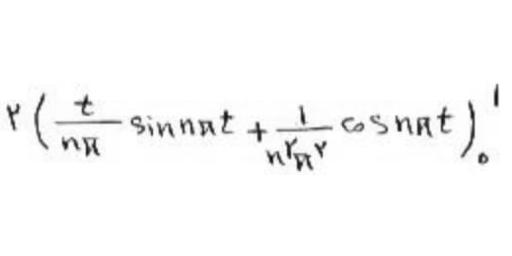 ۲ ( t/nπ sin nπt + ۱/n^۲π^۲ cos nπt )_۰^۱